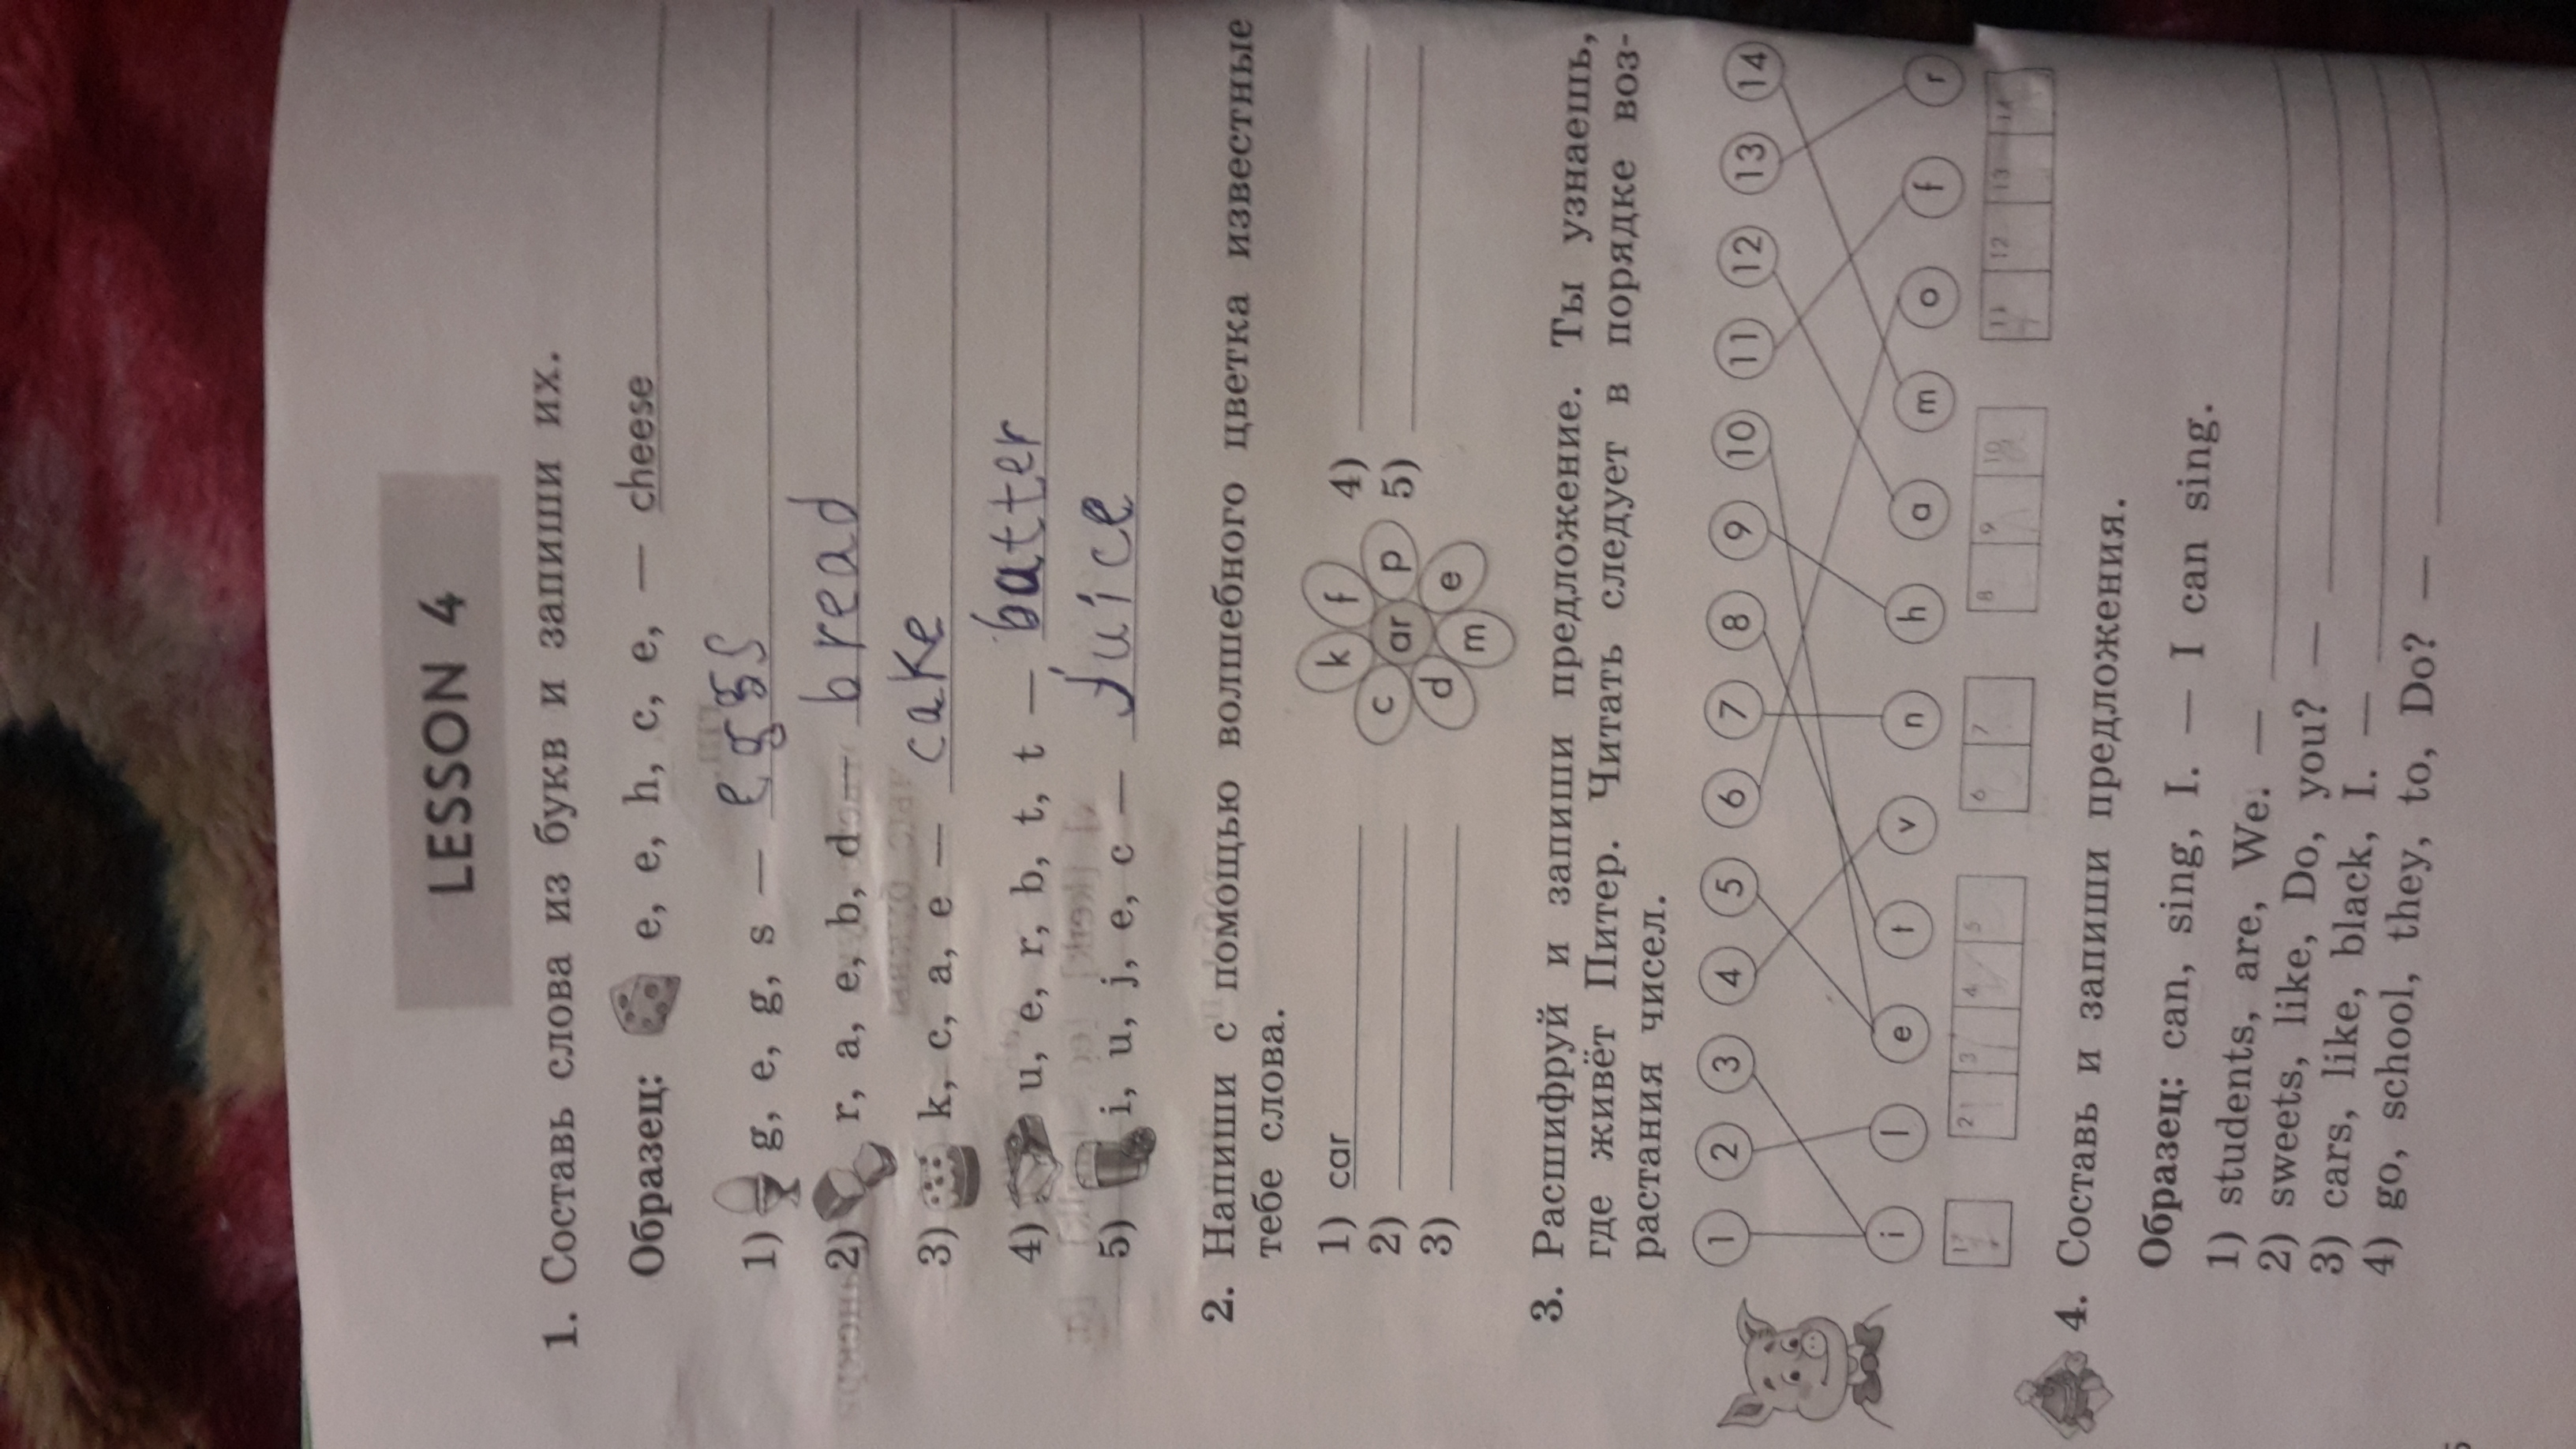 LESSON 4
1. Составь слова из букв и запиши их.
Образец: e, e, h, c, e, — cheese
1) g, e, g, s — eggs
2) r, a, e, b, d — bread
3) k, c, a, e — cake
4) u, e, r, b, t, t — batter
5) i, u, j, e, c — Juice
2. Напиши с помощью волшебного цветка известные
тебе слова.
1) car
2)
3)
k f c ar p d m e
4)
5)
3. Расшифруй и запиши предложение. Ты узнаешь,
где живёт Питер. Читать следует в порядке воз-
растания чисел.
1 2 3 4 5 6 7 8 9 10 11 12 13 14
i l e t v n h a m o f r
1 2 3 4 5 6 7 8 9 10 11 12 13 14
4. Составь и запиши предложения.
Образец: can, sing, I. — I can sing.
1) students, are, We. —
2) sweets, like, Do, you? —
3) cars, like, black, I. —
4) go, school, they, to, Do? —